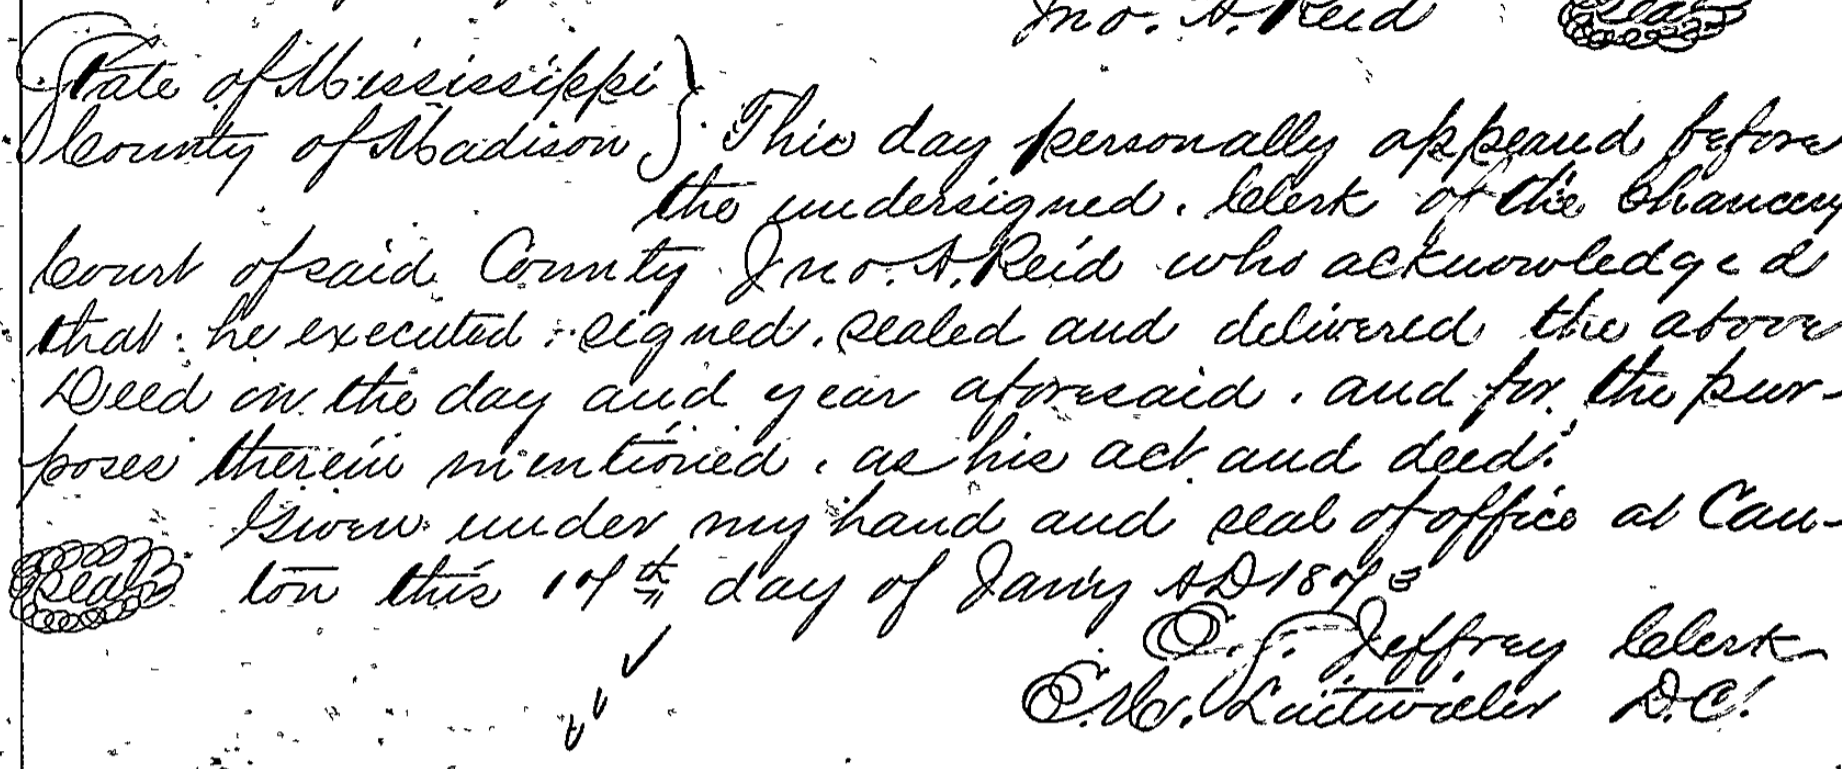 Jno. A. Reid Seal
State of Mississippi
County of Madison } This day personally appeared before
the undersigned. Clerk of the Chancery
Court of said County Jno. A. Reid who acknowledged
that he executed signed. sealed and delivered the above
Deed on the day and year aforesaid. and for the pur-
poses therein mentioned. as his act and deed.
Given under my hand and seal of office at Can-
Seal ton this 17th day of Jany AD 1873
Jeffrey Clerk
Luitwieler D.C.